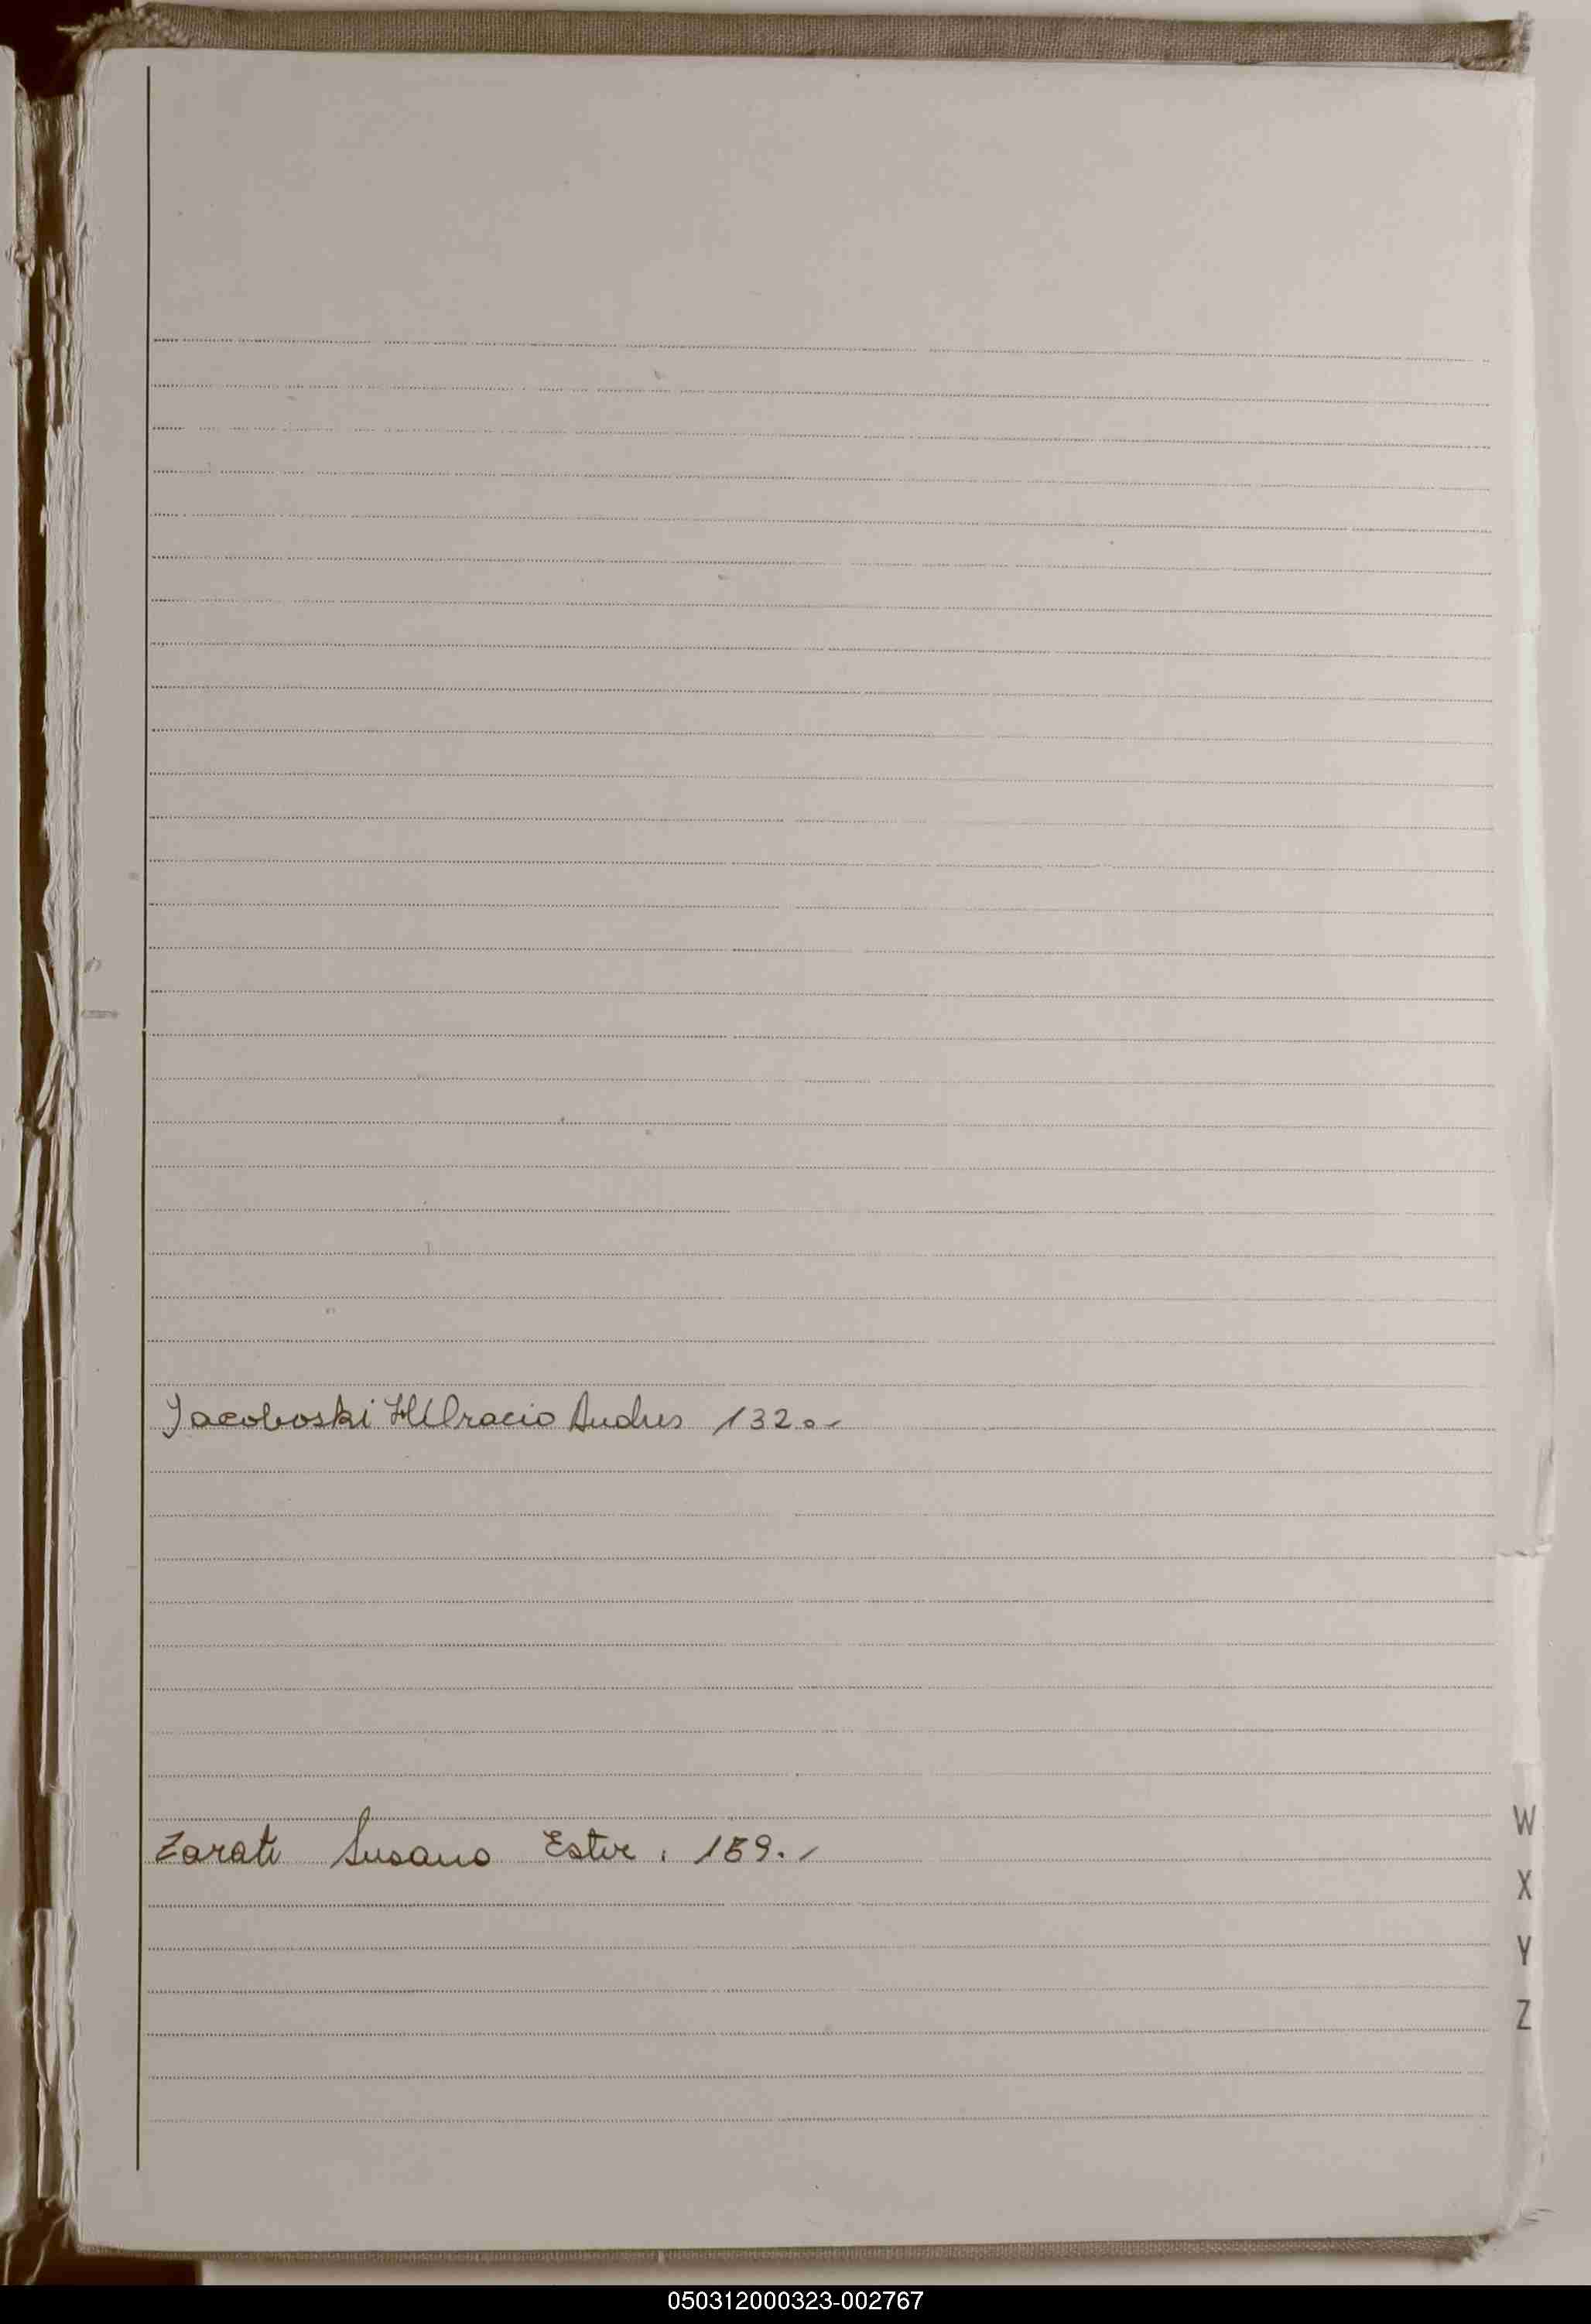 Yacoboski Horacio Andres 132.-
Zarate Susana Ester. 159.-
W
X
Y
Z
050312000323-002767